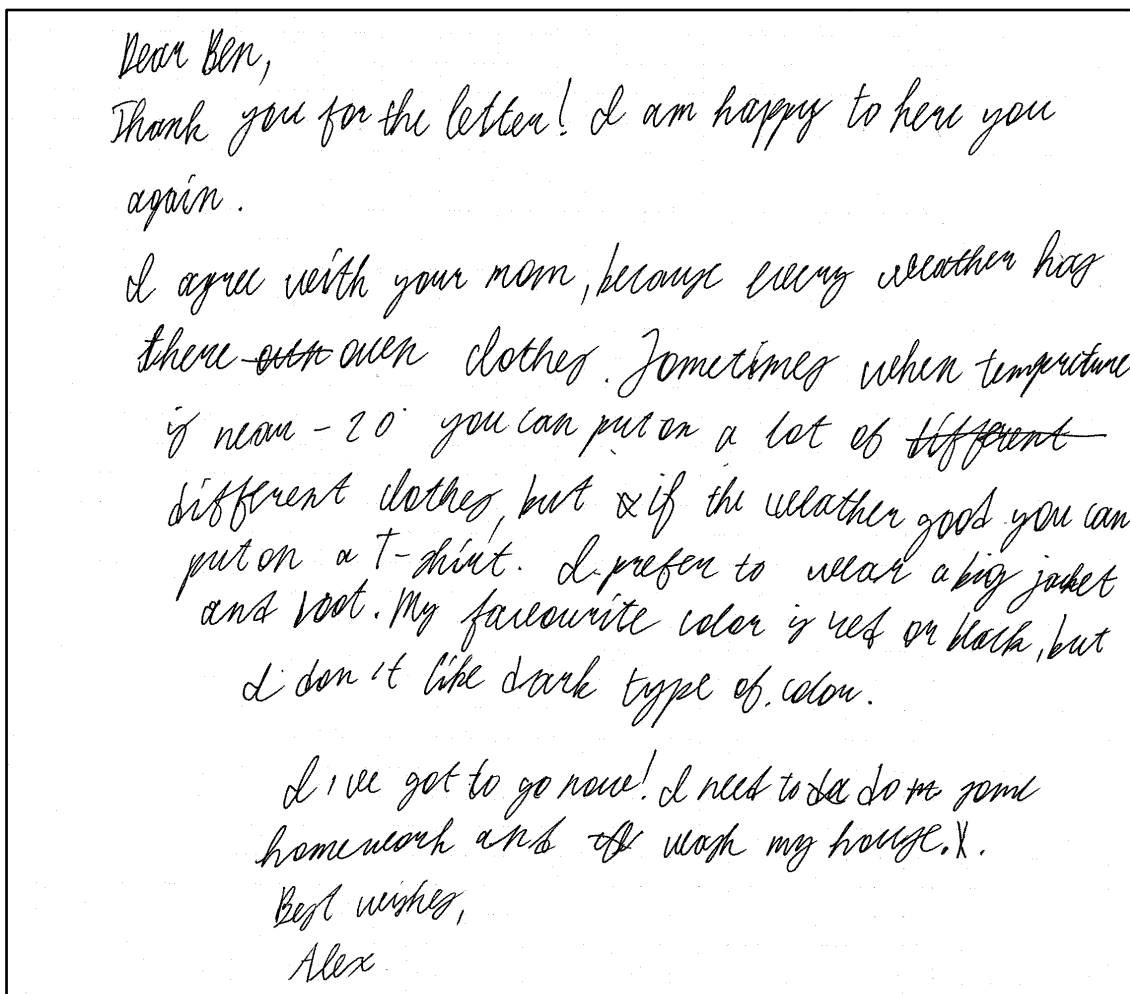 Dear Ben,
Thank you for the letter! I am happy to here you
again.
I agree with your mom, because every weather has
there own clothes. Sometimes when temperture
is near - 20° you can put on a lot of different
different clothes, but if the weather good you can
put on a T-shirt. I prefer to wear a big jacket
and boot. My favourite color is red or black, but
I don't like dark type of color.
I've got to go now! I need to do some
homework and wash my house.
Best wishes,
Alex